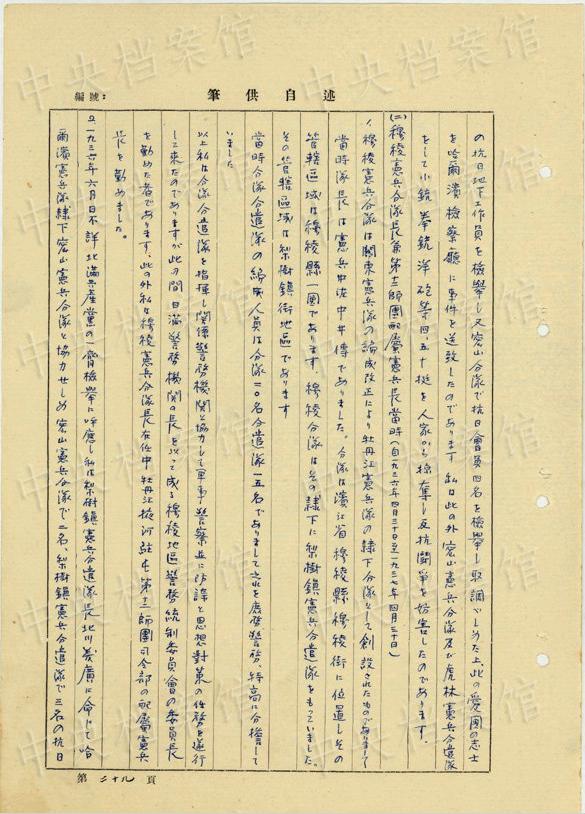 編號：
筆供自述
の抗日地下工作員を檢挙し又密山分隊で抗日會員四名を檢挙し取調べしめた上、此の愛國の志士
を哈爾濱檢察廳に事件を送致したのであります 私は此の外密山憲兵分隊及び虎林憲兵分遣隊
をして小銃拳銃洋砲等四、五十挺を人家から掠奪し反抗鬪爭を妨害したのであります。
(二)穆稜憲兵分隊長兼第十二師團配屬憲兵長當時(自一九三六年四月三十日至一九三七年四月三十日)
1、穆稜憲兵分隊は關東憲兵隊の編成改正により牡丹江憲兵隊の隷下分隊として創設されたものでありまして
當時隊長は憲兵中佐中井傳でありました。分隊は濱江省穆稜縣穆稜街に位置しその
管轄区域は穆稜縣一圓であります、穆稜分隊はその隷下に梨樹鎮憲兵分遣隊をもっていました。
その管轄區域は梨樹鎮街地區であります
當時分隊分遣隊の編成人員は分隊二〇名分遣隊一五名でありまして之れを庶務警務、特高に分擔して
いました
以上私は分隊分遣隊を指揮し関係警務機関と協力して軍事警察並に防諜と思想対策の任務を遂行
して来たのでありますが此の間日満警務機関の長を以って成る穆稜地區警務統制委員會の委員長
を勤めた者であります、此の外私は穆稜憲兵分隊長在任中牡丹江掖河駐屯第十二師團司令部の配屬憲兵
長を勤めました。
2、一九三六年六月日不詳北満共産党の一齊檢挙に呼應し私は梨樹鎮憲兵分遣隊長北川義廣に命じて哈
爾濱憲兵隊隷下密山憲兵分隊と協力せしめ密山憲兵分隊で二名、梨樹鎮憲兵分遣隊で三名の抗日
第二十九頁
中央档案馆
中央档案馆
中央档案馆
中央档案馆